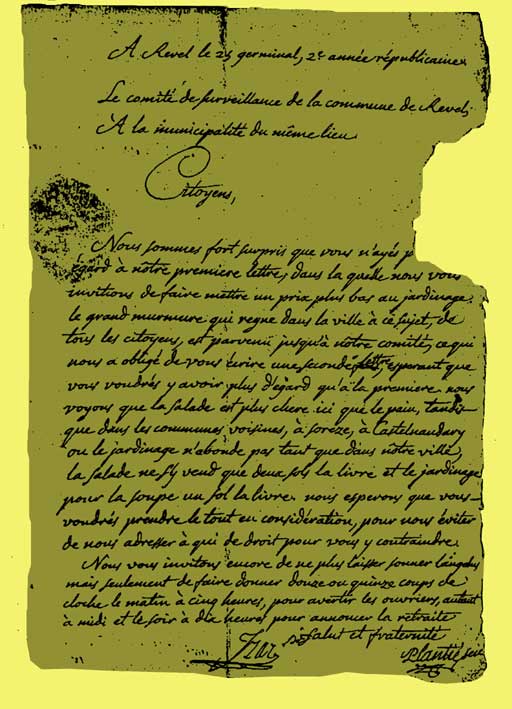 A Revel le 25 germinal, 2e année républicaine.
Le comité de surveillance de la commune de Revel,
A la municipalité du même lieu.
Citoyens,
Nous sommes fort surpris que vous n'ayés p
égard à nôtre premiere lettre, dans la quelle nous vous
invitions de faire mettre un prix plus bas au jardinage.
le grand murmure qui regne dans la ville à ce sujet, de
tous les citoyens, est parvenu jusqu'à nôtre comité, ce qui
nous a obligé de vous écrire une seconde lettre, esperant que
vous voudrés y avoir plus d'égard qu'à la premiere. nous
voyons que la salade est plus chere ici que le pain, tandis
que dans les communes voisines, à soréze, à Castelnaudary
ou le jardinage n'abonde pas tant que dans nôtre ville,
la salade ne s'y vend que deux sols la livre et le jardinage
pour la soupe un sol la livre. nous esperons que vous
voudrés prendre le tout en considération, pour nous éviter
de nous adresser à qui de droit pour vous y contraindre.
Nous vous invitons encore de ne plus laisser sonner l'angelus
mais seulement de faire donner douze ou quinze coups de
cloche le matin à cinq heures, pour avertir les ouvriers, autant
à midi et le soir à dix heures pour annoncer la retraite
Salut et fraternité
Plantié